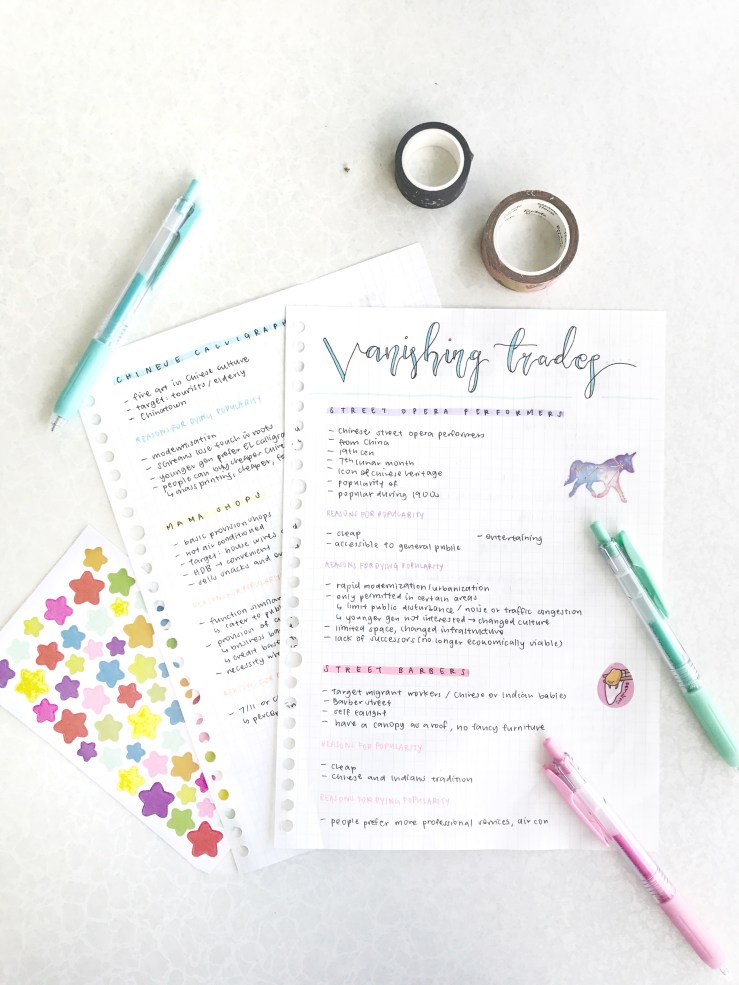 Vanishing trades
STREET OPERA PERFORMERS
- Chinese street opera performers
- from China
- 19th cen
- 7th lunar month
- Icon of Chinese heritage
- popularity of
- popular during 1900s
REASONS FOR POPULARITY
- cheap
- entertaining
- accessible to general public
REASONS FOR DYING POPULARITY
- rapid modernization/urbanization
- only permitted in certain areas
↳ limit public disturbance / noise or traffic congestion
↳ younger gen not interested → changed culture
- limited space, changed infrastructure
- lack of successors (no longer economically viable)
STREET BARBERS
- Target migrant workers / Chinese or Indian babies
- Barber street
- self taught
- have a canopy as a roof, no fancy furniture
REASONS FOR POPULARITY
- cheap
- Chinese and Indians tradition
REASONS FOR DYING POPULARITY
- people prefer more professional services, air con
CHINESE CALLIGRAPH
- fine art in Chinese culture
- target: tourists/elderly
- Chinatown
REASONS FOR DYING POPULARITY
- modernisation
- s'oreans lose touch in roots
- younger gen prefer EL calligra
- people can buy cheaper
↳ mass printing; cheaper,
MAMA SHOPS
- basic provision shops
- not air conditioned
- target: house wives
- HDB → convenient
- sells snacks and
- function similar
↳ cater to publ
- provision of
↳ business
↳ credit base
- necessity
- 7/11 or